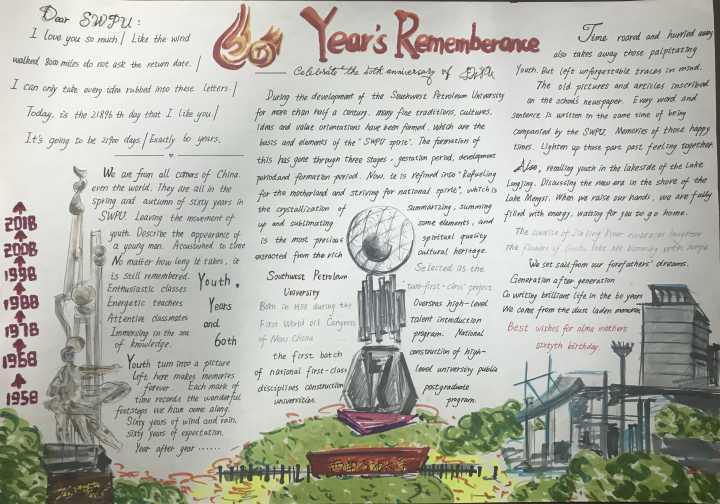 Dear SWPU:
I love you so much! Like the wind
walked 8000 miles do not ask the return date.
I can only take every idea rubbed into these letters.
Today, is the 21896 th day that I like you!
It's going to be 21900 days! Exactly 60 years.
60 Year's Rememberance
Celebrate the 60th anniversary of SWPU
We are from all corners of China.
even the world. They are all in the
spring and autumn of sixty years in
SWPU. Leaving the movement of
youth. Describe the appearance of
a young man. Accustomed to time
No matter how long it takes, it
is still remembered.
Enthusiastic classes
Energetic teachers
Attentive classmates
Immersing in the sea
of knowledge.
Youth,
Years
and
60th
Youth turn into a picture
Left here makes memories
forever. Each mark of
time records the wonderful
footsteps we have come along.
Sixty years of wind and rain,
sixty years of expectation.
Year after year ......
2018
2008
1998
1988
1978
1968
1958
During the development of the Southwest Petroleum University
for more than half a century, many fine traditions, cultures,
ideas and value orientations have been formed, which are the
basis and elements of the "SWPU spirit". The formation of
this has gone through three stages, gestation period, development
period and formation period. Now, it is refined into "Refueling
for the motherland and striving for national spirit", which is
the crystallization of summarizing, summing
up and sublimating some elements, and
is the most precious spiritual quality
extracted from the rich cultural heritage.
Southwest Petroleum
University
Born in 1958 during the
First World Oil Congress
of New China
the first batch
of national first-class
disciplines construction
universities.
Selected as the
"two-first-class" project
Overseas high-level
talent introduction
program. National
construction of high-
level university public
postgraduate
program.
Time roared and hurried away
also takes away those palpitating
Youth. But left unforgettable traces in mind.
The old pictures and articles inscribed
on the schools newspaper. Every word and
sentence is written in the same time of being
companied by the SWPU. Memories of those happy
times. Lighten up those pure past feeling together
Also, recalling youth in the lakeside of the Lake
Longjing. Discussing the new era in the shore of the
Lake Mengxi. When we raise our hands, we are fully
filled with energy, waiting for you to go home.
The sunrise of Jialing River embraces
The flowers of
We set sail from our forefathers' dreams.
Generation after generation
Co writing brilliant life in the 60 years
We come from the dust laden memories
Best wishes for alma mothers
sixtyth birthday